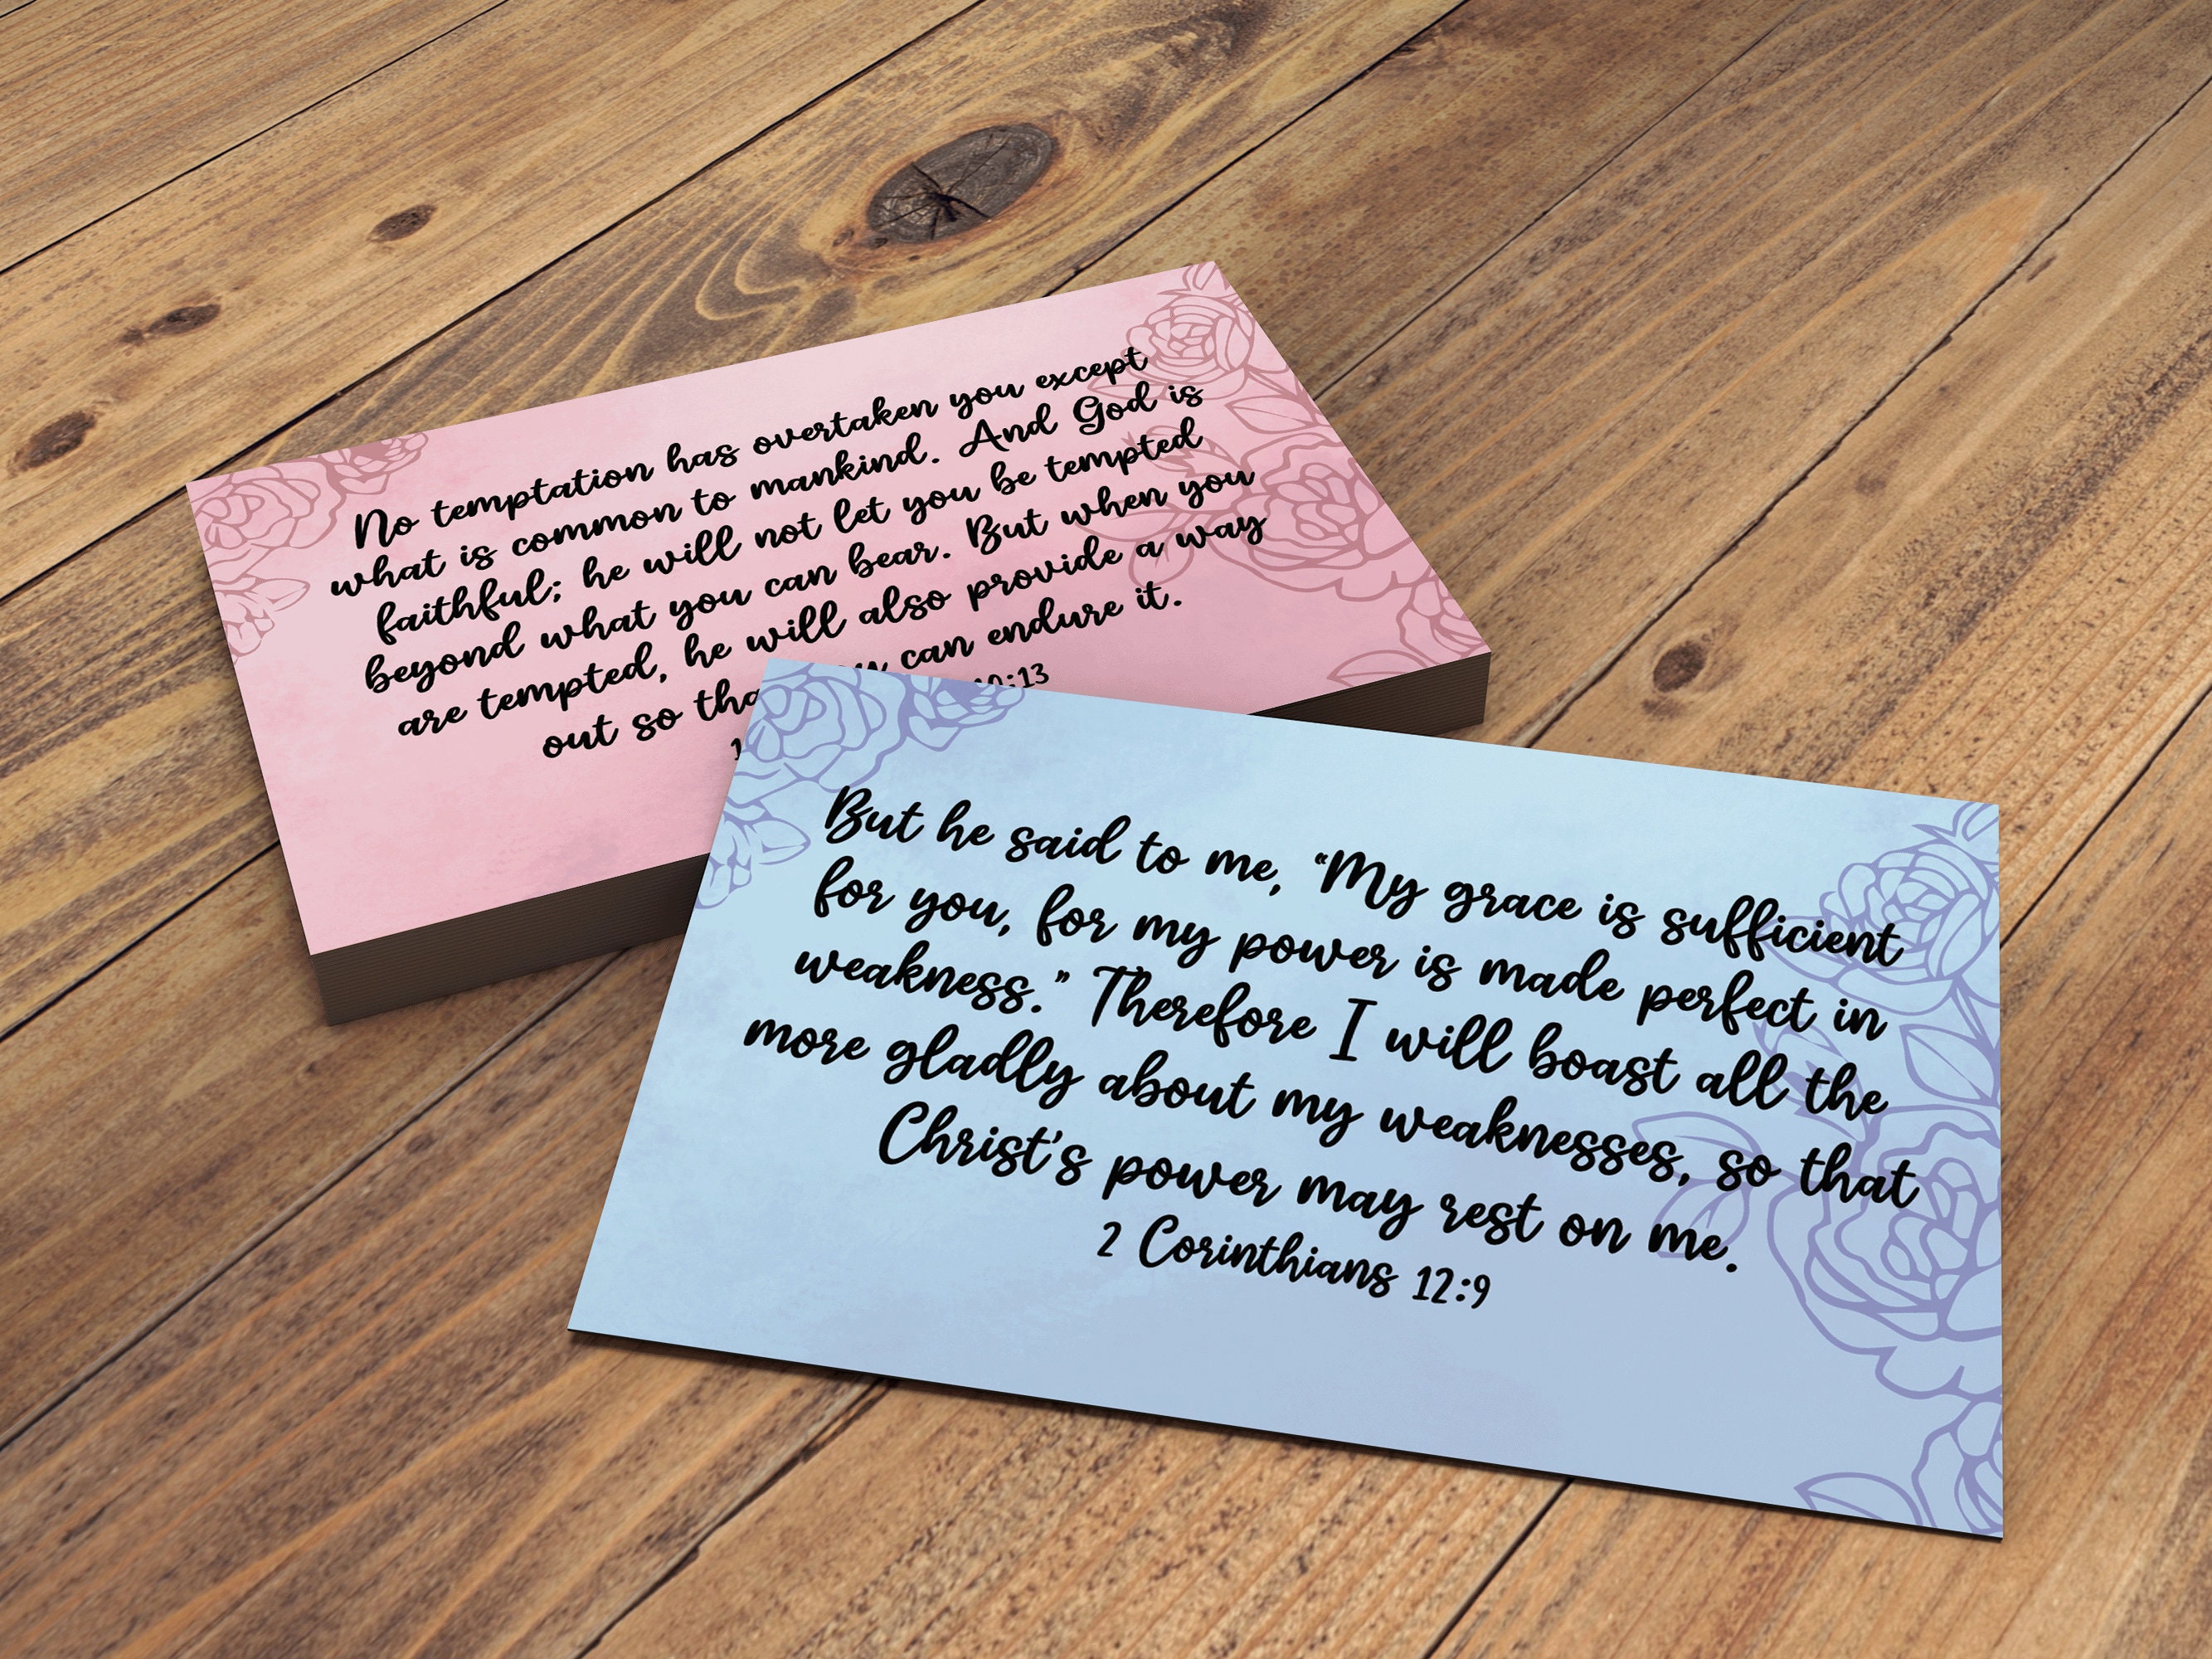 No temptation has overtaken you except
what is common to mankind. And God is
faithful; he will not let you be tempted
beyond what you can bear. But when you
are tempted, he will also provide a way
out so can endure it.
:13
But he said to me, “My grace is sufficient
for you, for my power is made perfect in
weakness.” Therefore I will boast all the
more gladly about my weaknesses, so that
Christ's power may rest on me.
2 Corinthians 12:9